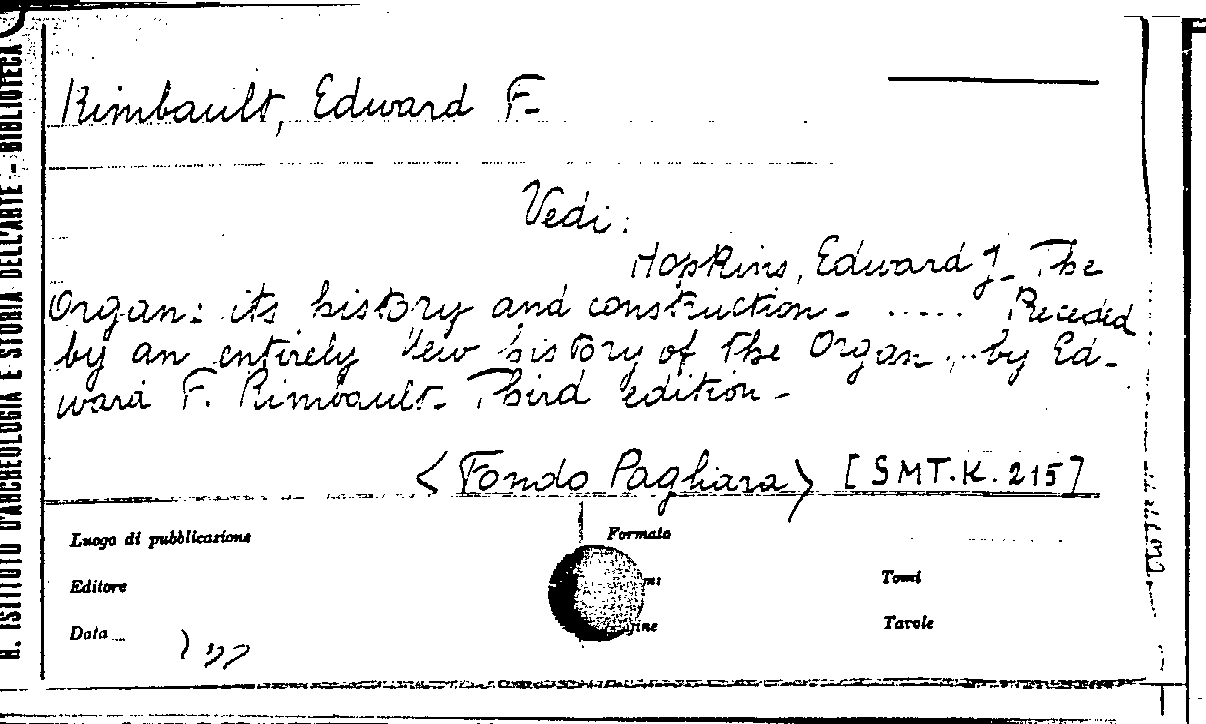 R. ISTITUTO D'ARCHEOLOGIA E STORIA DELL'ARTE - BIBLIOTECA
Rimbault, Edward F.
Vedi:
Hopkins, Edward J. The
Organ: its history and construction. ..... Preceded
by an entirely New history of the Organ ... by Ed-
ward F. Rimbault. Third edition.
<Fondo Pagliara> [SMT.K.215]
Luogo di pubblicazione Formato
Editore Tomi
Data Tavole